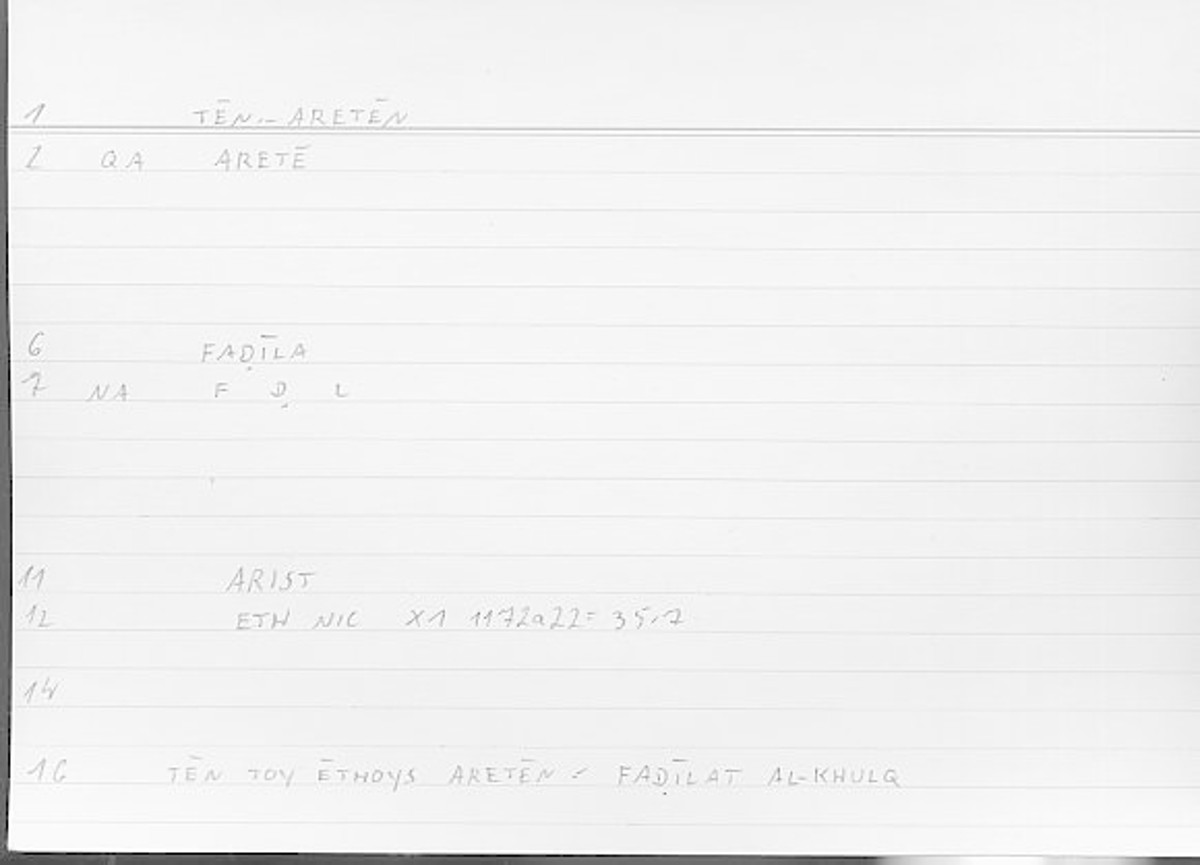 1 TĒN – ARETĒN
2 QA ARETĒ
6 FAḌĪLA
7 NA F Ḍ L
11 ARIST
12 ETH NIC X1 1172a22 =
14
16 TĒN TOY ĒTHOYS ARETĒN – FAḌĪLAT AL-KHULQ